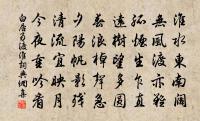 淮水東南闊
無風渡亦難
孤煙生乍直
遠樹望多圓
春浪棹聲急
夕陽帆影殘
清流宜映月
今夜重吟看
白居易渡淮